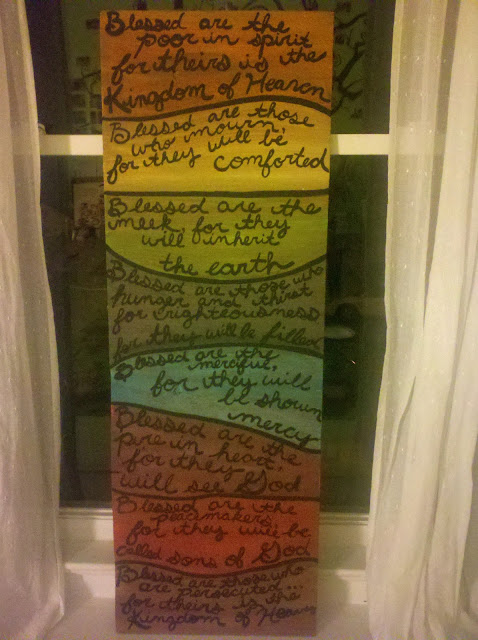 Blessed are the
poor in spirit
for theirs is the
Kingdom of Heaven
Blessed are those
who mourn,
for they will be
comforted
Blessed are the
meek, for they
will inherit
the earth
Blessed are those who
hunger and thirst
for righteousness
for they will be filled
Blessed are the
merciful,
for they will
be shown
mercy
Blessed are the
pure in heart,
for they
will see God
Blessed are the
peacemakers,
for they will be
called sons of God
Blessed are those who
are persecuted...
for theirs is the
Kingdom of Heaven